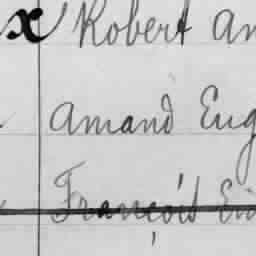 x Robert An
Amand Eug
François